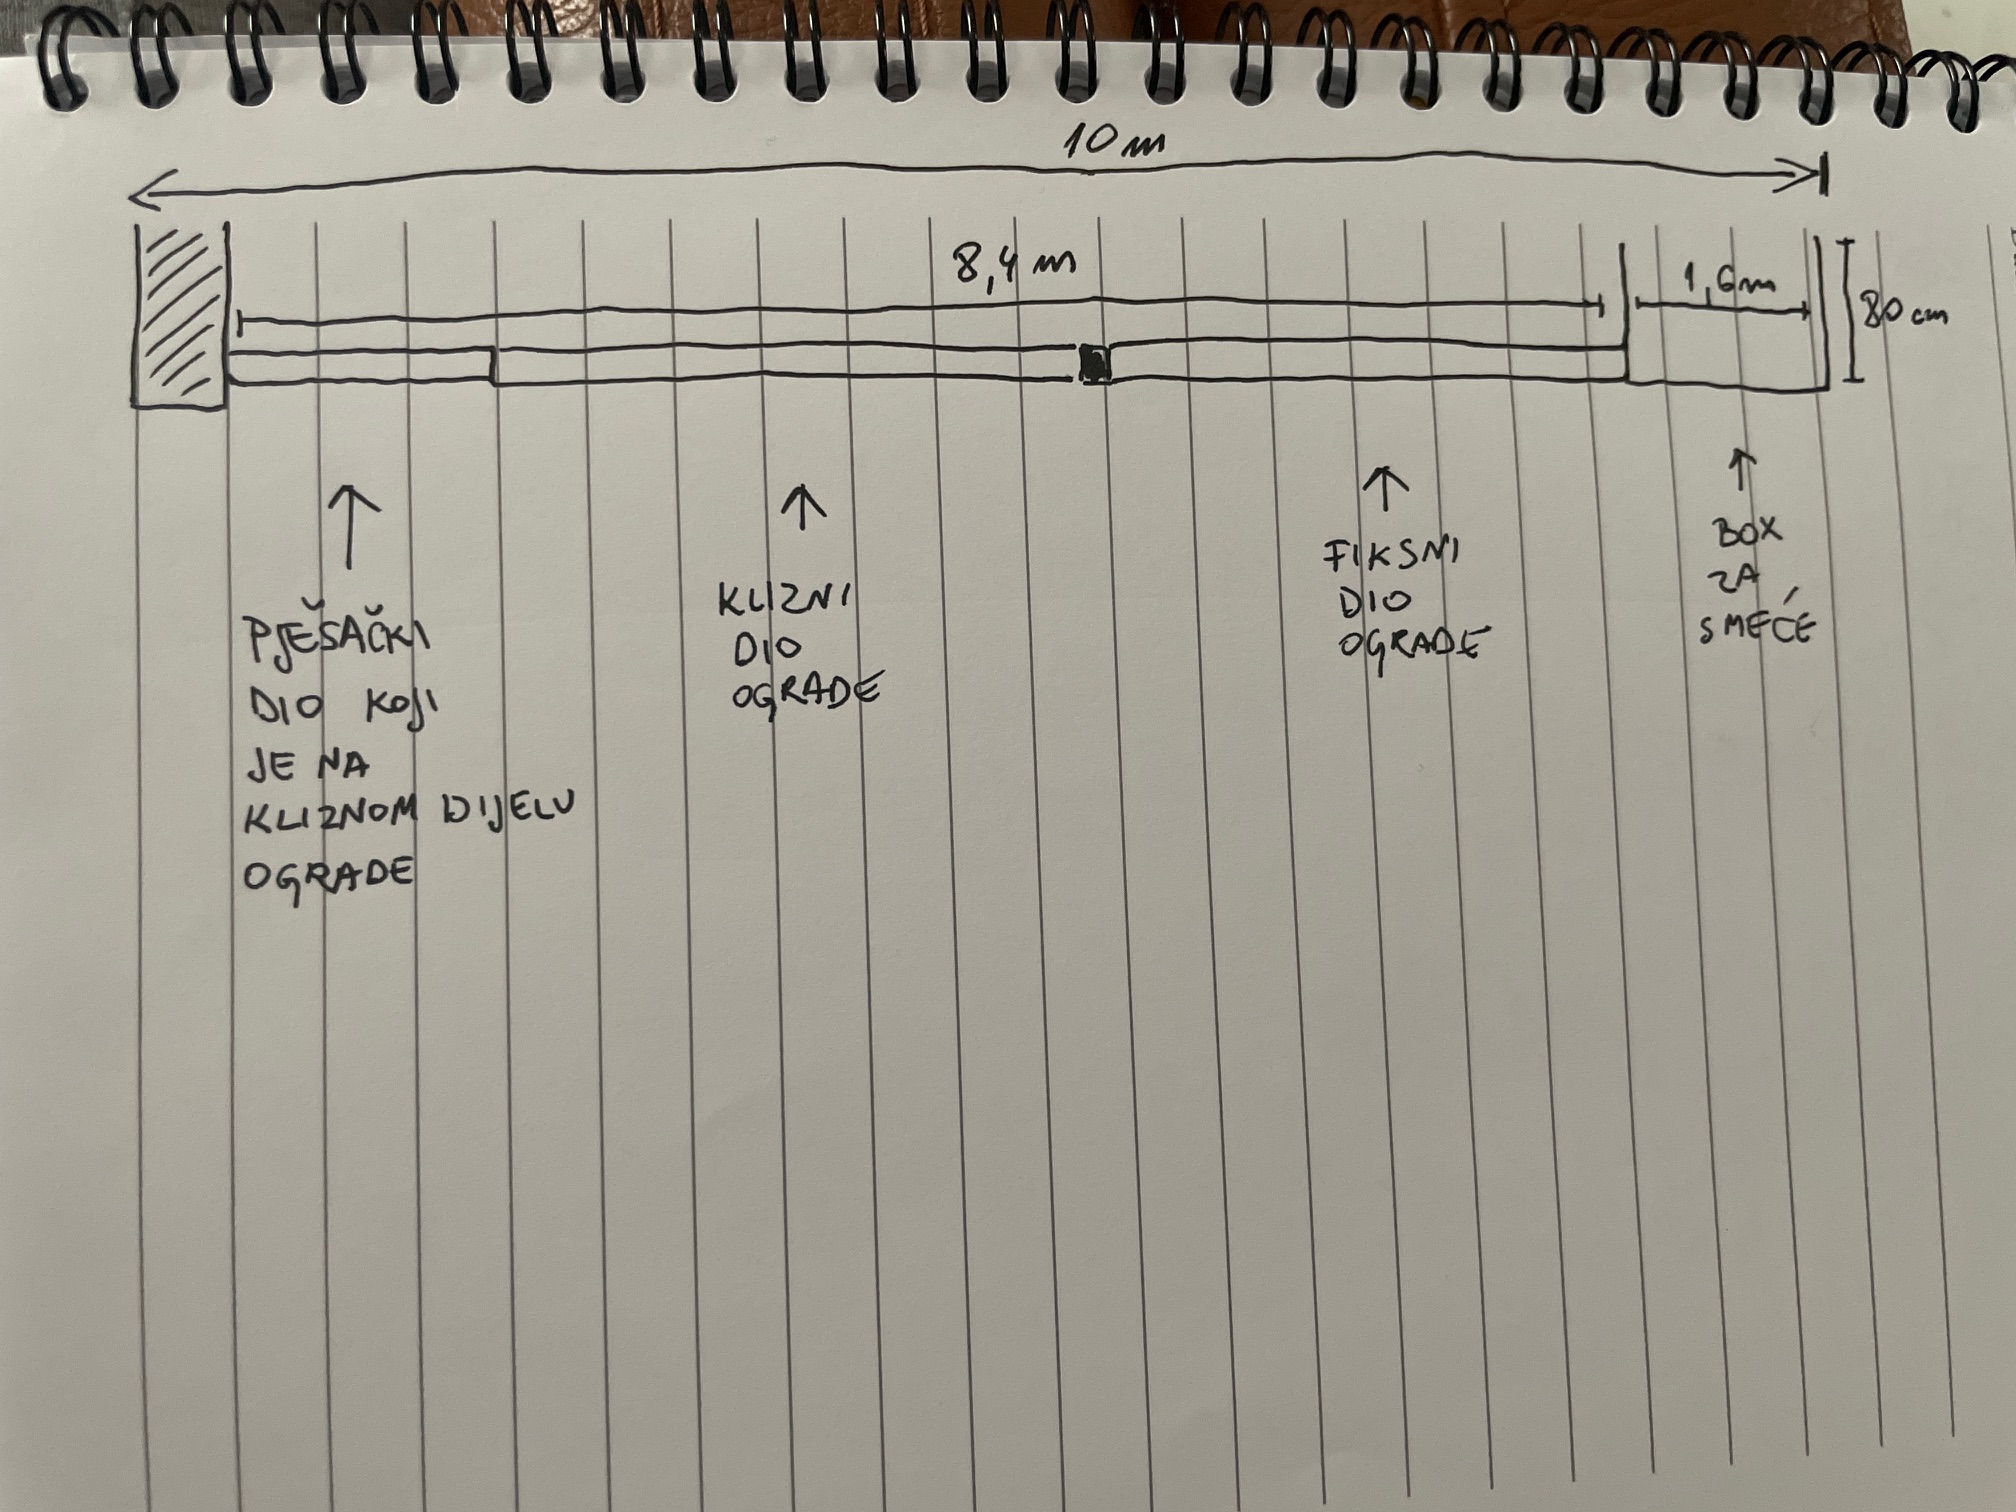 10m
8,4m
1,6m
80cm
PJEŠAČKI
DIO KOJI
JE NA
KLIZNOM DIJELU
OGRADE
KLIZNI
DIO
OGRADE
FIKSNI
DIO
OGRADE
BOX
ZA
SMEĆE